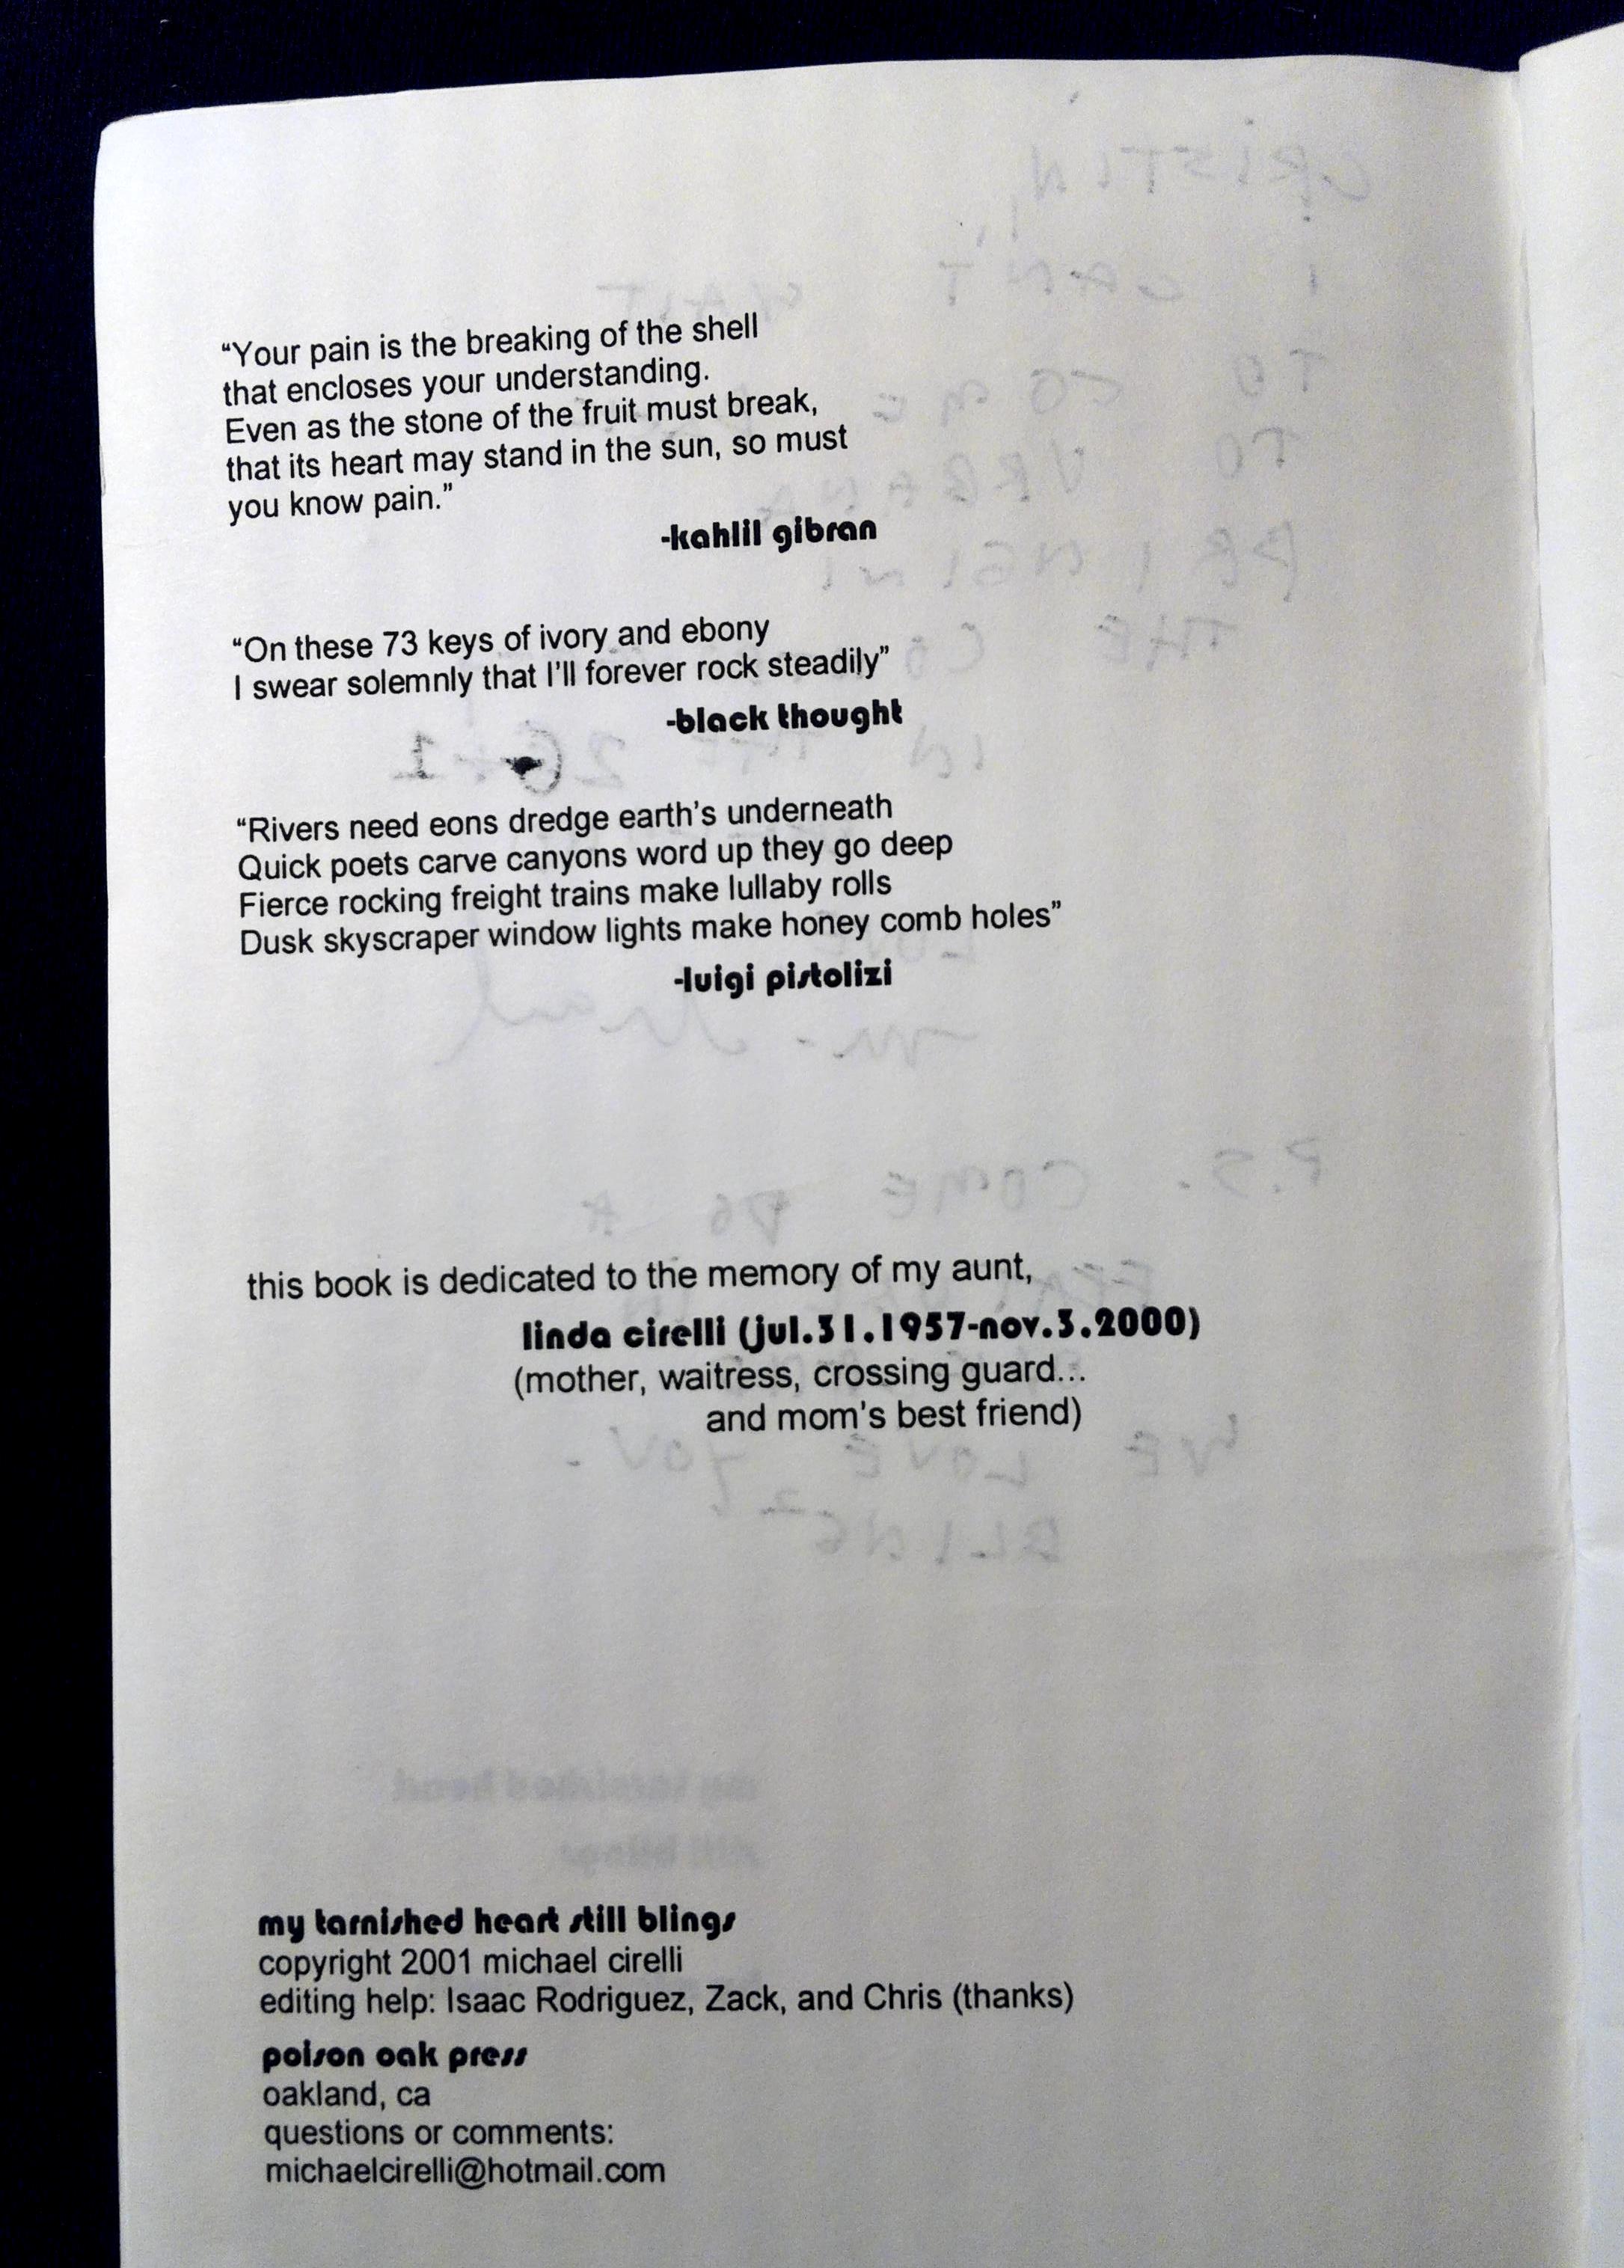 “Your pain is the breaking of the shell
that encloses your understanding.
Even as the stone of the fruit must break,
that its heart may stand in the sun, so must
you know pain.”
-kahlil gibran
“On these 73 keys of ivory and ebony
I swear solemnly that I’ll forever rock steadily”
-black thought
“Rivers need eons dredge earth’s underneath
Quick poets carve canyons word up they go deep
Fierce rocking freight trains make lullaby rolls
Dusk skyscraper window lights make honey comb holes”
-luigi pistolizi
this book is dedicated to the memory of my aunt,
linda cirelli (jul.31.1957-nov.3.2000)
(mother, waitress, crossing guard...
and mom's best friend)
my tarnished heart still blings
copyright 2001 michael cirelli
editing help: Isaac Rodriguez, Zack, and Chris (thanks)
poison oak press
oakland, ca
questions or comments:
michaelcirelli@hotmail.com